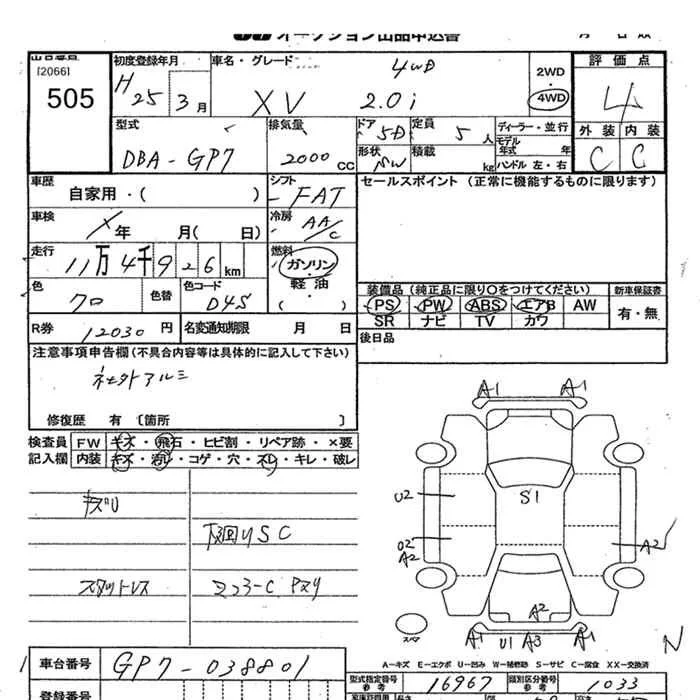 オークション出品申込書
出品番号 初度登録年月 車名・グレード 評価点
[2066] H 4WD 2WD
505 25 3月 XV 2.0i 4WD 4
型式 排気量 ドア 定員 ディーラー・並行 外装 内装
DBA-GP7 2000CC 5D 5人 モデル年式 年 C C
形状 積載 kg ハンドル 左・右
車歴 シフト セールスポイント (正常に機能するものに限ります)
自家用・( ) FAT
車検 冷房
年 月( 日) AA/C
走行 燃料
11万4千926km ガソリン・軽油・( )
色 色替 色コード 装備品(純正品に限り○をつけてください) 新車保証書
クロ D4S PS PW ABS エアB AW 有・無
SR ナビ TV カワ
R券 12030円 名変通知期限 月 日 後日品
注意事項申告欄(不具合内容等は具体的に記入して下さい)
社外アルミ
修復歴 有 〔箇所 〕
検査員 FW キズ・飛石・ヒビ割・リペア跡・×要
記入欄 内装 キズ・汚レ・コゲ・穴・スレ・キレ・破レ
A1 A1
キズU U2 S1
下廻りSC
U2 A2 A2
スタットレス
A2
スペア
A1 U1 A3 A1
A−キズ E−エクボ U−凹み W−補修跡 S−サビ C−腐食 XX−交換済
車台番号 GP7-038801 型式指定番号 参考 16967 類別区分番号 参考 1033
登録番号